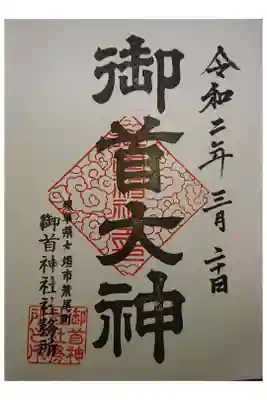 令和二年三月二十日
御首大神
岐阜県大垣市荒尾町
御首神社社務所